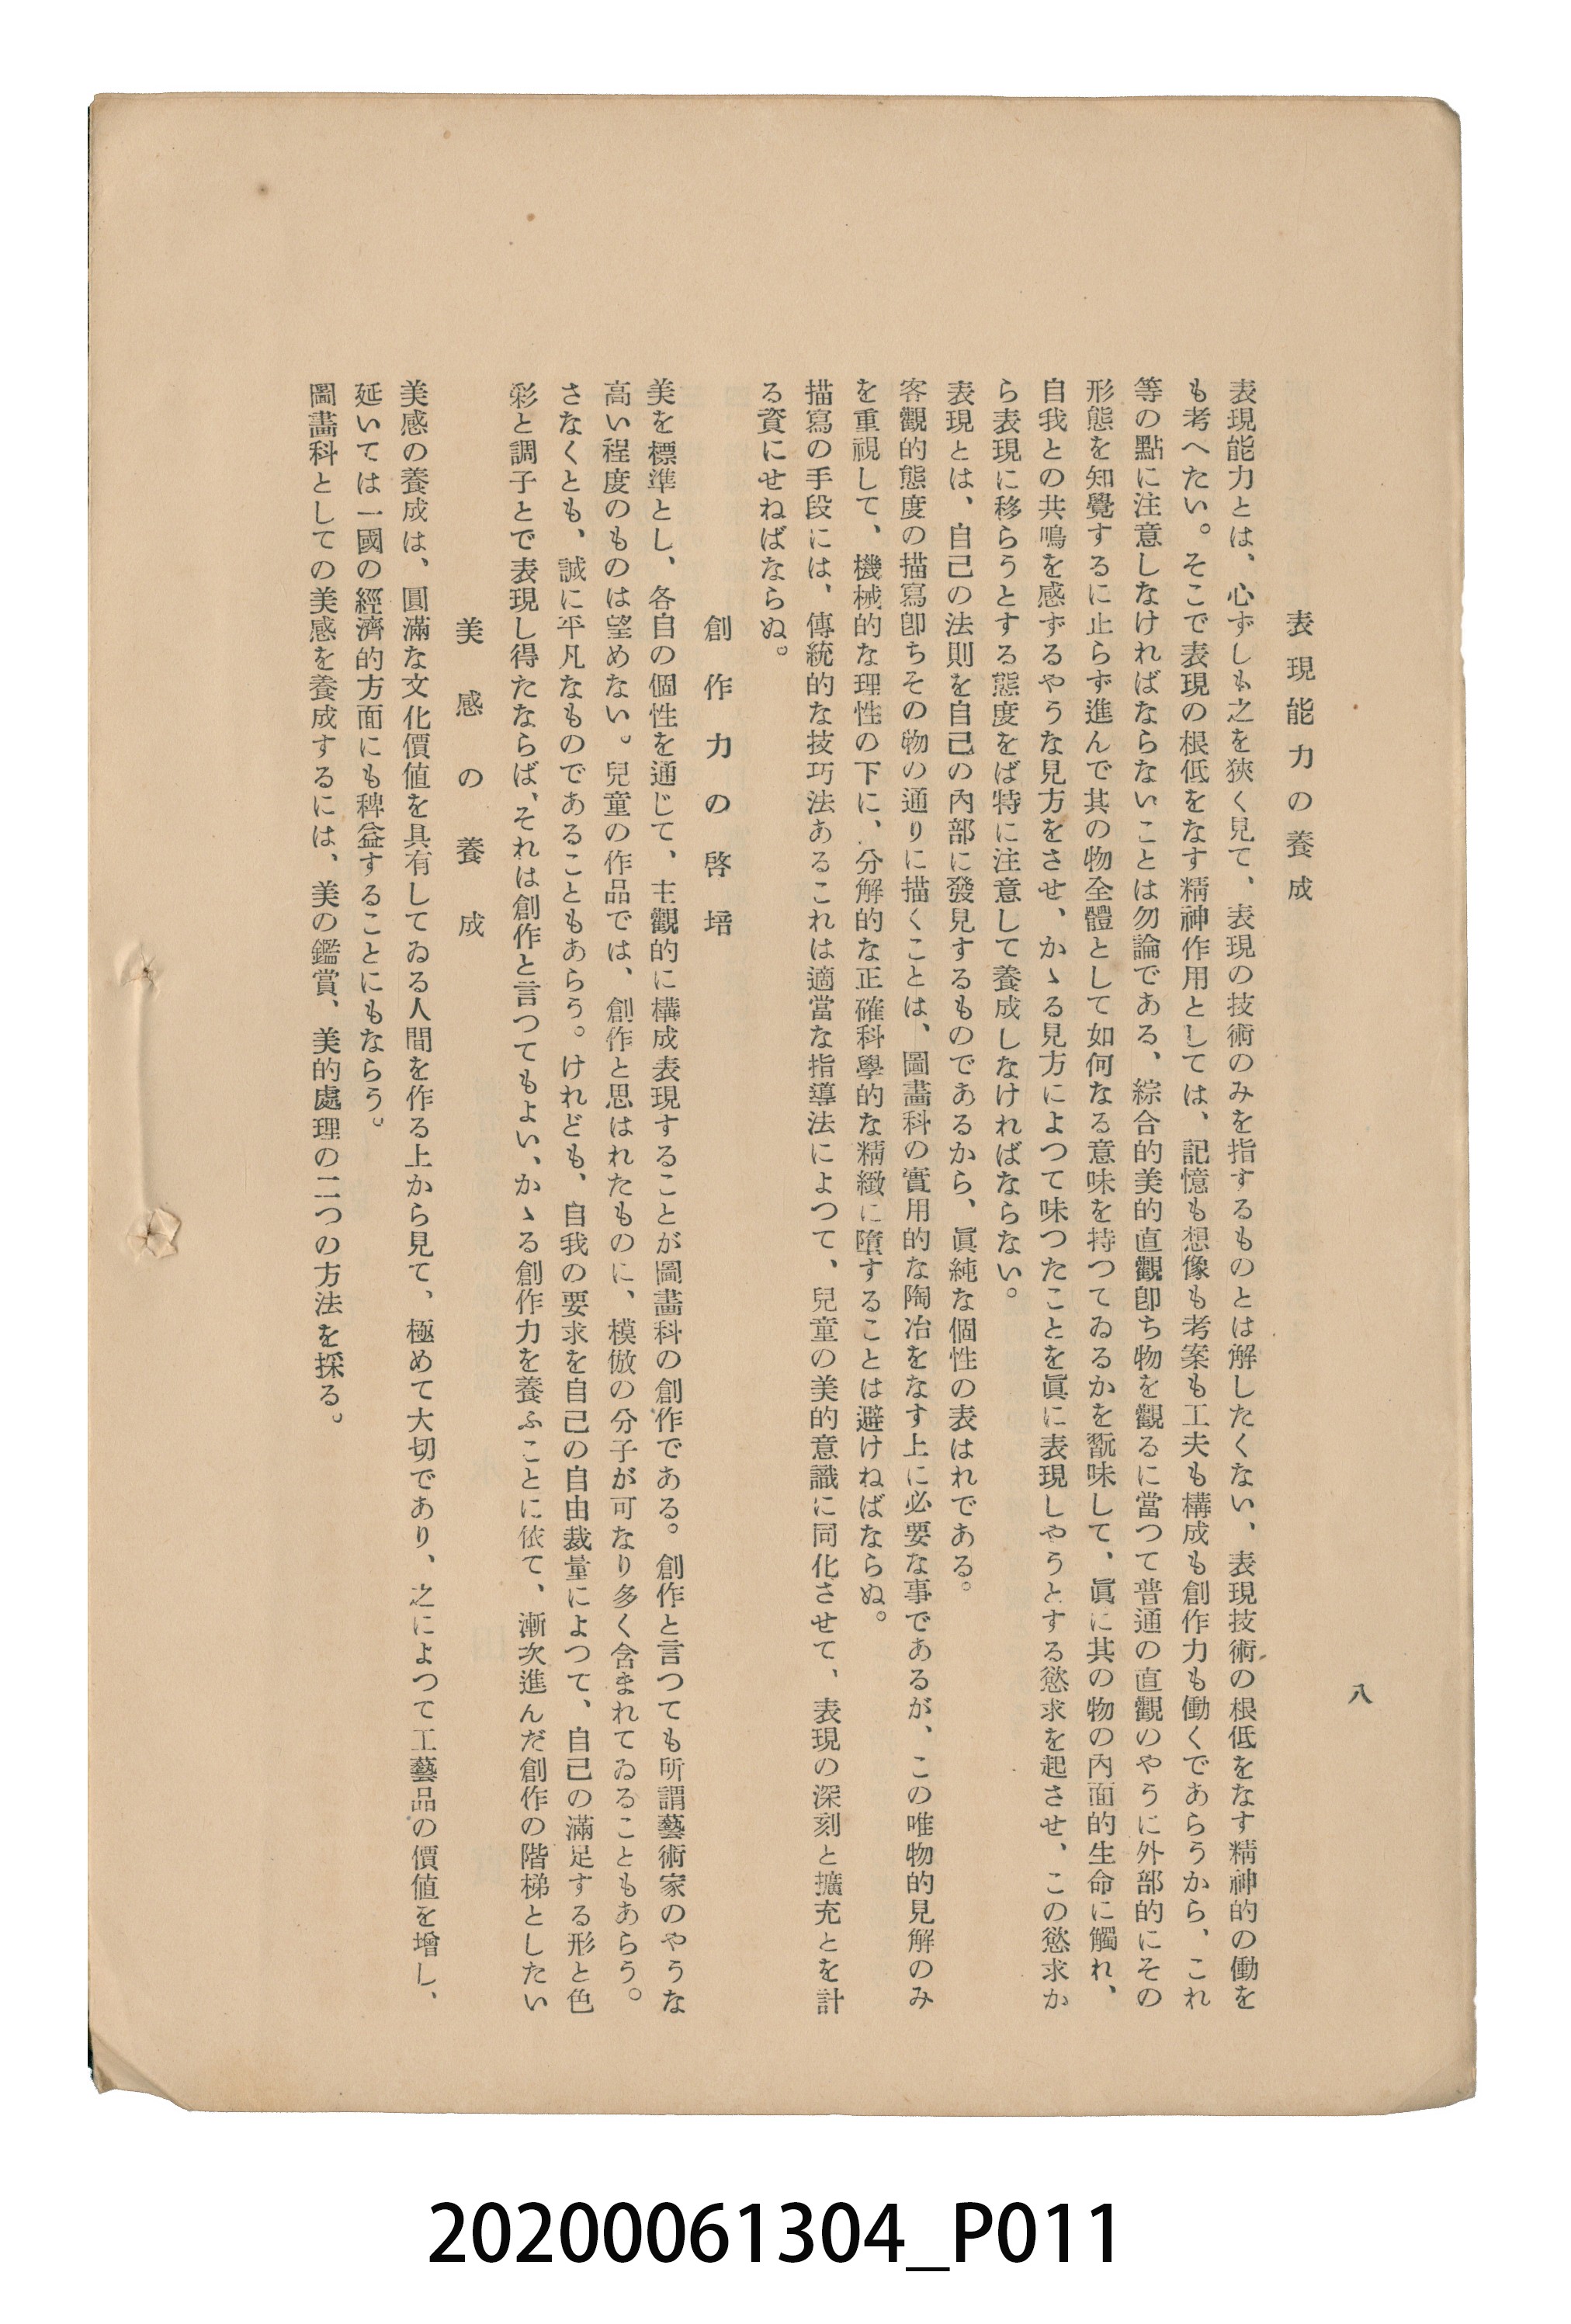 八
表現能力の養成
表現能力とは、心ずしも之を狹く見て、表現の技術のみを指するものとは解したくない、表現技術の根低をなす精神的の働を
も考へたい。そこで表現の根低をなす精神作用としては、記憶も想像も考案も工夫も構成も創作力も働くであらうから、これ
等の點に注意しなければならないことは勿論である、綜合的美的直觀卽ち物を觀るに當つて普通の直觀のやうに外部的にその
形態を知覺するに止らず進んで其の物全體として如何なる意味を持つてゐるかを翫味して、眞に其の物の內面的生命に觸れ、
自我との共鳴を感ずるやうな見方をさせ、かゝる見方によつて味つたことを眞に表現しやうとする慾求を起させ、この慾求か
ら表現に移らうとする態度をば特に注意して養成しなければならない。
表現とは、自己の法則を自己の內部に發見するものであるから、眞純な個性の表はれである。
客觀的態度の描寫卽ちその物の通りに描くことは、圖畵科の實用的な陶冶をなす上に必要な事であるが、この唯物的見解のみ
を重視して、機械的な理性の下に、分解的な正確科學的な精緻に墮することは避けねばならぬ。
描寫の手段には、傳統的な技巧法あるこれは適當な指導法によつて、兒童の美的意識に同化させて、表現の深刻と擴充とを計
る資にせねばならぬ。
創作力の啓培
美を標準とし、各自の個性を通じて、主觀的に構成表現することが圖畵科の創作である。創作と言つても所謂藝術家のやうな
高い程度のものは望めない。兒童の作品では、創作と思はれたものに、模倣の分子が可なり多く含まれてゐることもあらう。
さなくとも、誠に平凡なものであることもあらう。けれども、自我の要求を自己の自由裁量によつて、自己の滿足する形と色
彩と調子とで表現し得たならば、それは創作と言つてもよい、かゝる創作力を養ふことに依て、漸次進んだ創作の階梯としたい
美感の養成
美感の養成は、圓滿な文化價値を具有してゐる人間を作る上から見て、極めて大切であり、之によつて工藝品の價値を增し、
延いては一國の經濟的方面にも稗益することにもならう。
圖畵科としての美感を養成するには、美の鑑賞、美的處理の二つの方法を採る。
20200061304_P011